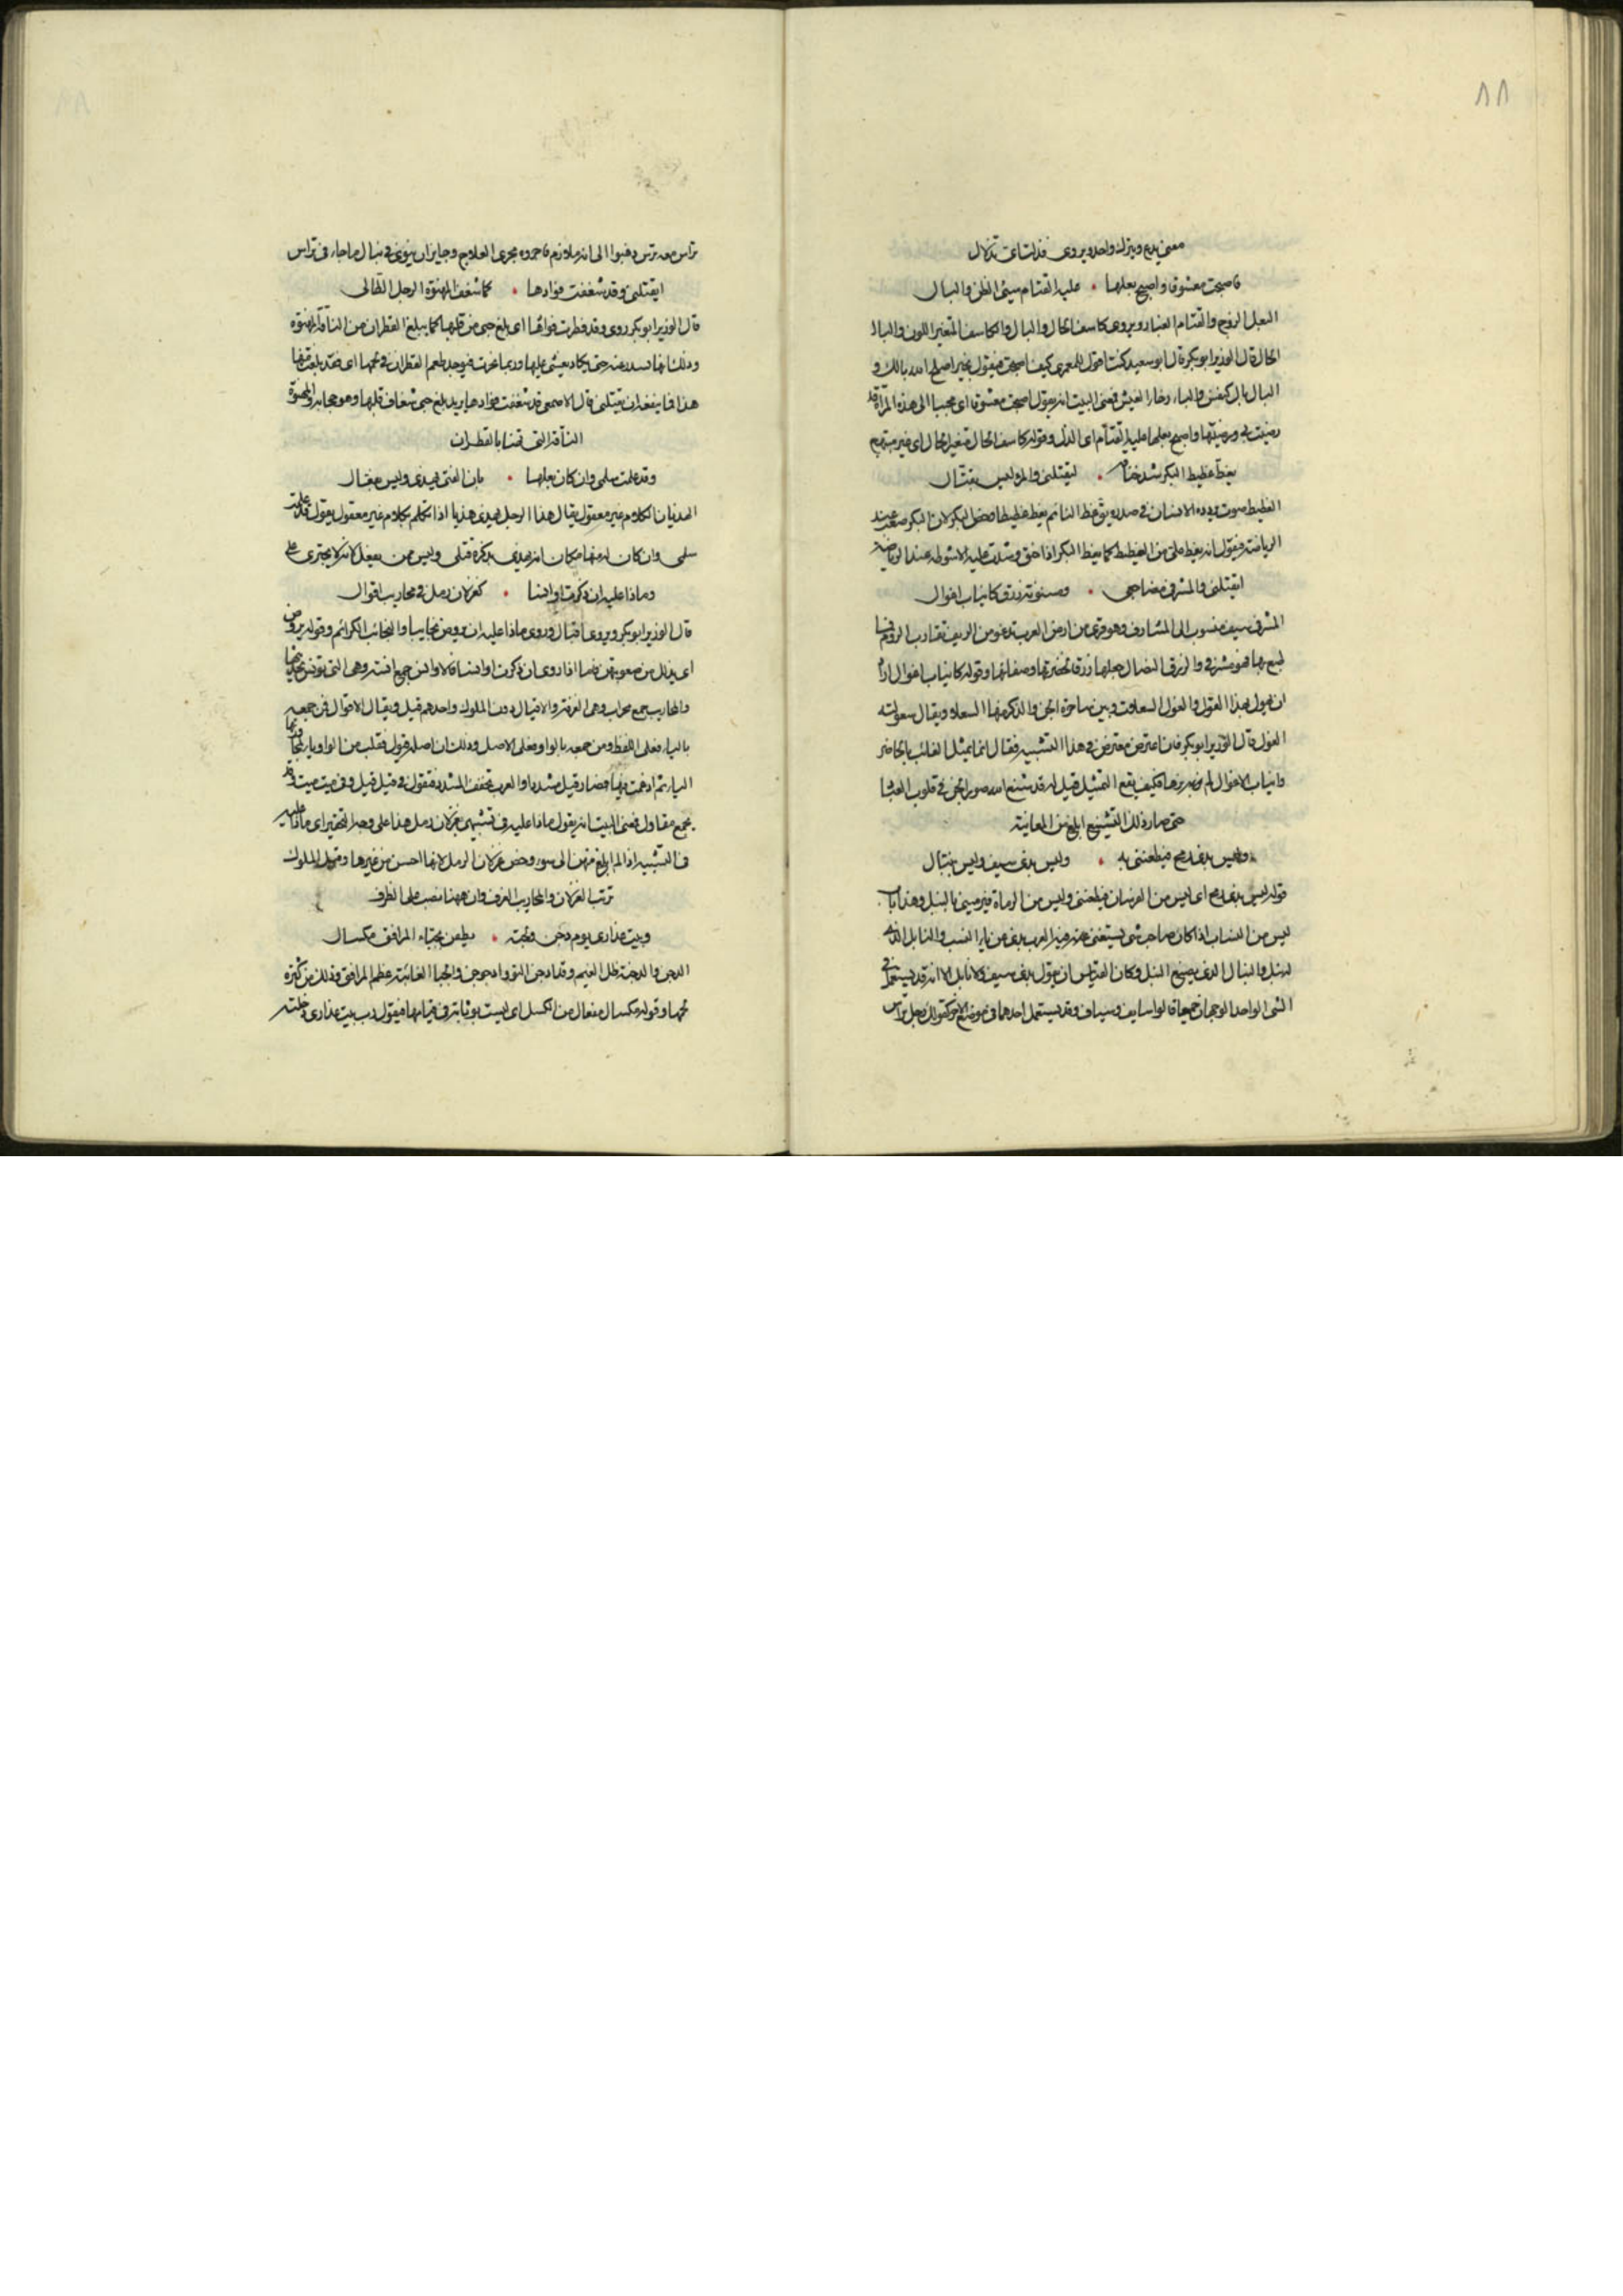 ٨٨
معنى يدع ويترك واحد ويروى فذلت اى تذلال
فاصبحت معشوقا واصبح بعلها • عليه القتام سيئ الظن والبال
البعل الزوج والقتام الغبار ويروى كاسف الحال والبال والكاسف المتغير اللون والبال
الحال قال الوزير ابو بكر قال ابو سعيد كنت اقول للمعمرى كيف اصبحت فيقول بخير اصلح الله بالك و
البال بال النفس والبال رخاء العيش فمعنى البيت انه يقول اصبحت معشوقا اى محببا الى هذه المرأة قد
رضيت بى ورضيتها واصبح بعلها عليه القتام اى الذل وقوله كاسف الحال متغير الحال اى غير مبتهج
يغط غطيط البكر شد خناقه • ليقتلنى والمرء ليس بقتال
الغطيط صوت يردده الانسان فى صدره يق غط النائم يغط غطيطا وخص البكر لان البكر صعب عند
الرياضة فيقول انه يغط على من الغيظ كما يغط البكر اذا خنق وشدت عليه الانشوطة عند الرياضة
ايقتلنى والمشرفى مضاجعى • ومسنونة زرق كانياب اغوال
المشرفى سيف منسوب الى المشارف وهو قرى من ارض العرب تدنو من الريف تقارب الروم فما
طبع بها فهو مشرفى والزرق النصال جعلها زرقا لخضرتها وصفائها وقوله كانياب اغوال اراد
ان يهول بهذا القول والغول السعلات وهى ساحرة الجن والذكر منها السعلاء ويقال سعولته
الغول قال الوزير ابو بكر فان اعترض معترض فى هذا التشبيه فقال انما يمثل الغائب بالحاضر
وانياب الاغوال لم نرها فكيف يقع التمثيل قيل له قد شنع الله صور الجن فى قلوب العباد
حتى صار ذلك التشنيع ابلغ من المعاينة
وليس بذى رمح فيطعننى به • وليس بذى سيف وليس بنبال
قوله ليس بذى رمح اى ليس من الفرسان فيطعننى وليس من الرماة فيرمينى بالنبل وهذا باب
ليس من النساب اذا كان صاحب شى يستغنى عنه فيه العرب بذى عن ياء النسب والنابل الذى
له نبل والنبال الذى يصنع النبل وكان القياس ان يقول بذى سيف ولا نابل الا انه قد يستعمل فى
الشى الواحد الوجهان جميعا قالوا سايف وسياف وقد يستعمل احدهما فى موضع الاخر كقولك رجل تراس
تراس معه ترس ذهبوا الى انه ملازم فاجروه مجرى العلاج وجايز ان ينوى فى نبال ما جاء فى تراس
ايقتلنى وقد شغفت فؤادها • كما شغف المهنؤة الرجل الطالى
قال الوزير ابو بكر روى وقد قطرت فؤادها اى بلغ حبى من قلبها كما يبلغ القطران من الناقة المهنؤة
وذلك انها تسدر عنه حتى يكاد يغشى عليها وربما نحرت فيوجد طعم القطران فى لحمها اى فقد بلغت منها
هذا فما ينفعه ان يقتلنى قال الاصمعى قد شغفت فؤادها يريد بلغ حبى شغاف قلبها وهو حجابه والمهنؤة
الناقة التى تهنا بالقطران
وقد علمت سلمى وان كان بعلها • بان الفتى يهذى وليس بفعال
الهذيان الكلام غير معقول يقال هذا الرجل يهذى هذيا اذا تكلم بكلام غير معقول يقول قد علمت
سلمى وان كان له منها مكان انه يهذى بذكره قتلى وليس ممن يفعل لانه لا يجترى على
وماذا عليه ان ذكرت اوانسا • كغزلان رمل فى محاريب اقوال
قال الوزير ابو بكر ويروى اقيال وروى ماذا عليه ان يروض نجايبا والنجائب الكرائم وقوله يروض
اى يذلل من صعوبتهن فاما اذا روى ان ذكرت اوانسا فالاوانس جمع انسة وهى التى تونس بحديثها
والمحاريب جمع محراب وهى الغرفة والاقيال دون الملوك واحدهم قيل ويقال الاقوال فمن جمعه
بالياء فعلى اللفظ ومن جمعه بالواو فعلى الاصل وذلك ان اصله قيول فقلبت الواو ياء
الياء ثم ادغمت فيها فصار قيل مشددا والعرب تخفف المشدد فتقول فى قيل قيل وفى ميت ميت وقد
يجمع مقاول فمعنى البيت انه يقول ماذا عليه فى تشبيهى بغزلان رمل هذا على وجه التحقير اى ماذا عليه
فى التشبيه اذا لم ابلغ منهن الى سوء وخص غزلان الرمل لانها احسن من غيرها وقيل الملوك
تربب الغزلان والمحاريب الغرف وان ههنا نصب على الظرف
وبيت عذارى يوم دجن ولجته • يطفن بجباء المرافق مكسال
الدجن والدجنة ظل الغيم وقد ادجن اليوم وادجوجن والجبا الغائبة عظم المرافق وذلك من كثرة
لحمها وقوله مكسال مفعال من الكسل اى ليست بوثابة فى قيامها فيقول رب بيت عذارى دخلته